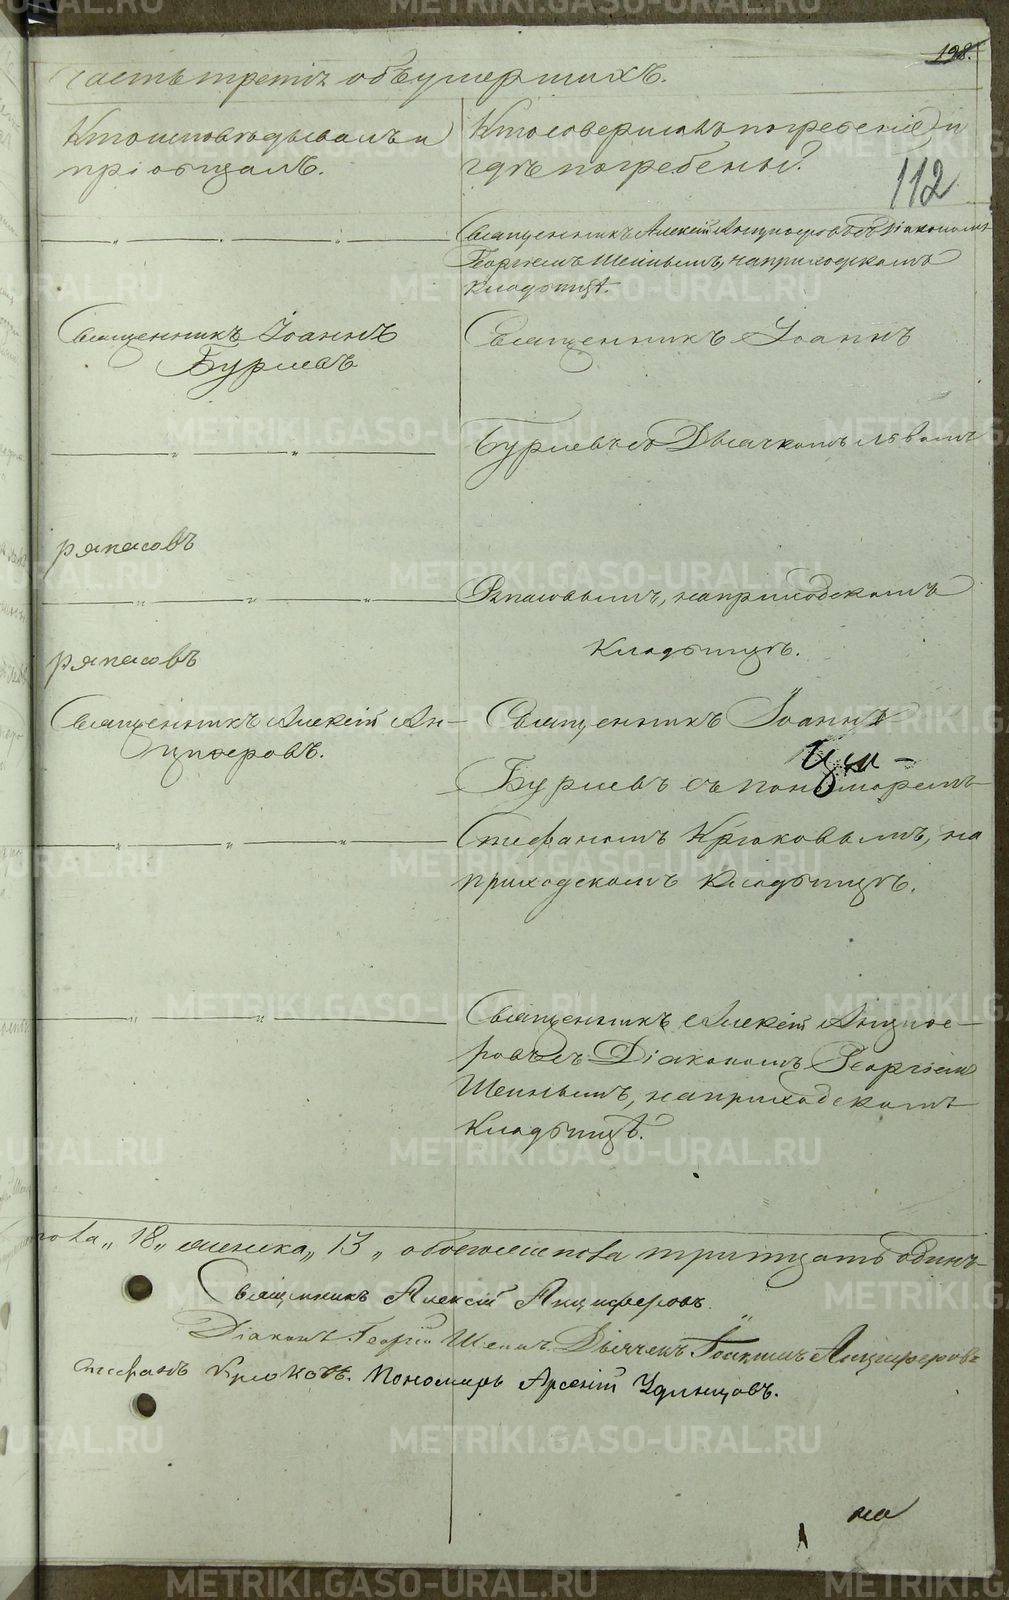 198.
Часть третія объ умершихъ.
Кто исповѣдывалъ и
пріобщалъ.
Кто совершалъ погребеніе и
гдѣ погребены.
112
Священникъ Алексій Анцыферовъ съ Діакономъ
Георгіемъ Шеинымъ, на приходскомъ
кладбищѣ.
Священникъ Іоаннъ
Буриевъ
Священникъ Іоаннъ
Буриевъ съ Дьячкомъ Львомъ
ряпасовъ
Ряпасовымъ, на приходскомъ
кладбищѣ.
ряпасовъ
Священникъ Алексій Ан-
цыферовъ.
Священникъ Іоаннъ
Буриевъ съ пономаремъ
Стефаномъ Крюковымъ, на
приходскомъ кладбищѣ.
Священникъ Алексій Анцыфе-
ровъ съ Діакономъ Георгіемъ
Шеинымъ, на приходскомъ
кладбищѣ.
пола „18„ женска „13„ обоего пола тритцать одинъ
Священникъ Алексій Анциферовъ.
Діаконъ Георгій Шеинъ. Дьячекъ Іоакимъ Анциферовъ
Стефанъ Крюковъ. Пономарь Арсеній Удинцовъ.
на